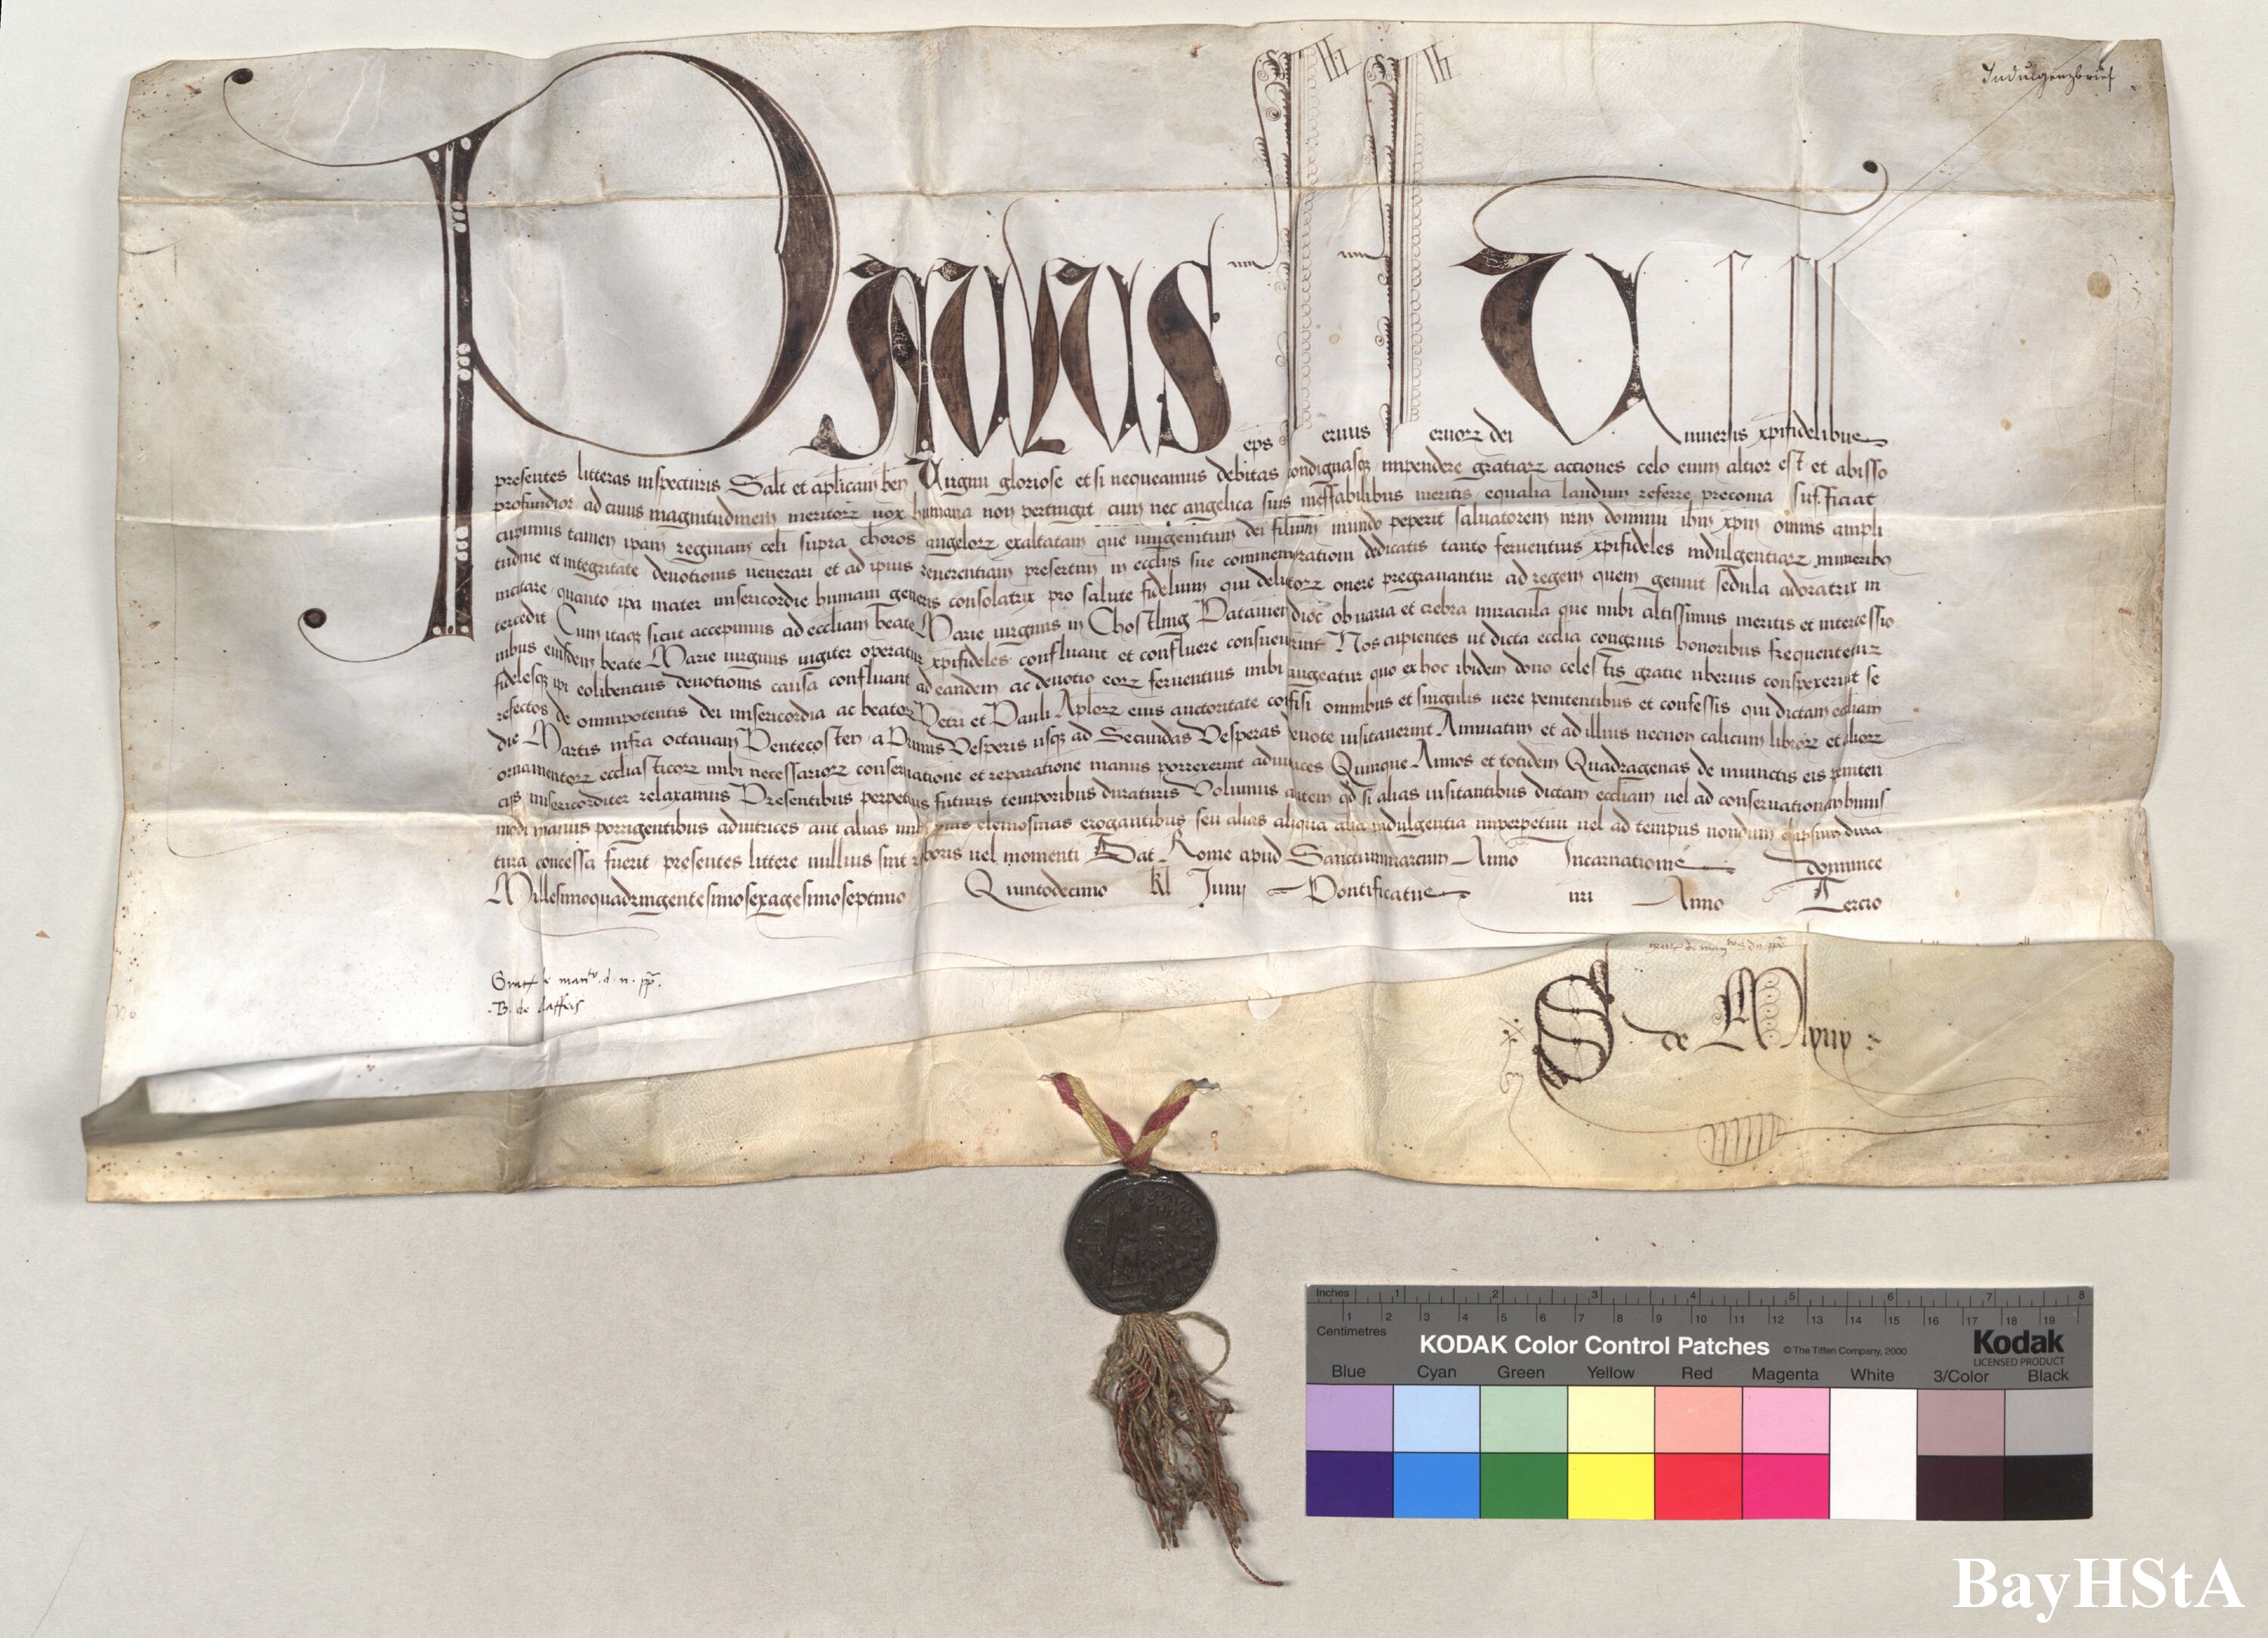 Indulgenzbrief
PAULUS eps seruus seruorz dei Uniuersis xpifidelibus
presentes litteras inspecturis Salt et aplicam ben Uirgini gloriose et si nequeamus debitas condignasqz impendere gratiarz actiones celo enim altior est et abisso
profundior ad cuius magnitudinem meritorz uox humana non pertingit cum nec angelica suis ineffabilibus meritis equalia laudum referre preconia sufficiat
cupimus tamen ipam reginam celi supra choros angelorz exaltatam que unigenitum dei filium mundo peperit saluatorem nrm dominum ihm xpm omnis ampli
tudine et integritate deuotionis uenerari et ad ipius reuerentiam presertim in ecclijs sue commemorationi dedicatis tanto feruentius xpifideles indulgentiarz muneribus
incitare quanto ipa mater misericordie humani generis consolatrix pro salute fidelium qui delictorz onere pregrauantur ad regem quem genuit sedula adoratrix in
tercedit Cum itaqz sicut accepimus ad eccliam beate Marie uirginis in Chostling Patauien dioc ob uaria et crebra miracula que inibi altissimus meritis et intercessio
nibus eiusdem beate Marie uirginis iugiter operatur xpifideles confluant et confluere consueuerint Nos cupientes ut dicta ecclia congruis honoribus frequentetur
fidelesqz ipi eo libentius deuotionis causa confluant ad eandem ac deuotio eorz feruentius inibi augeatur quo ex hoc ibidem dono celestis gratie uberius conspexerint se
refectos de omnipotentis dei misericordia ac beatorz Petri et Pauli Aplorz eius auctoritate confisi omnibus et singulis uere penitentibus et confessis qui dictam eccliam
die Martis infra octauam Pentecosten a Primis Vesperis usqz ad Secundas Vesperas deuote uisitauerint Annuatim et ad illius necnon calicum librorz et aliorz
ornamentorz eccliasticorz inibi necessariorz conseruatione et reparatione manus porrexerint adiutrices Quinque Annos et totidem Quadragenas de iniunctis eis peniten
cijs misericorditer relaxamus Presentibus perpetuis futuris temporibus duraturis Volumus autem qd si alias uisitantibus dictam eccliam uel ad conseruationem huius
modi manus porrigentibus adiutrices aut alias inibi pias elemosinas erogantibus seu alias aliqua alia indulgentia imperpetuum uel ad tempus nondum elapsum dura
tura concessa fuerit presentes littere nullius sint roboris uel momenti Dat Rome apud Sanctummarcum Anno Incarnationis dominice
Millesimoquadringentesimosexagesimoseptimo Quintodecimo kl Junij Pontificatus nri Anno Tercio
de manto d. n. pp.
B. de
de
PAULUS
Inches 1 2 3 4 5 6 7 8
Centimetres 1 2 3 4 5 6 7 8 9 10 11 12 13 14 15 16 17 18 19
KODAK Color Control Patches © The Tiffen Company, 2000 Kodak
LICENSED PRODUCT
Blue Cyan Green Yellow Red Magenta White 3/Color Black
BayHStA